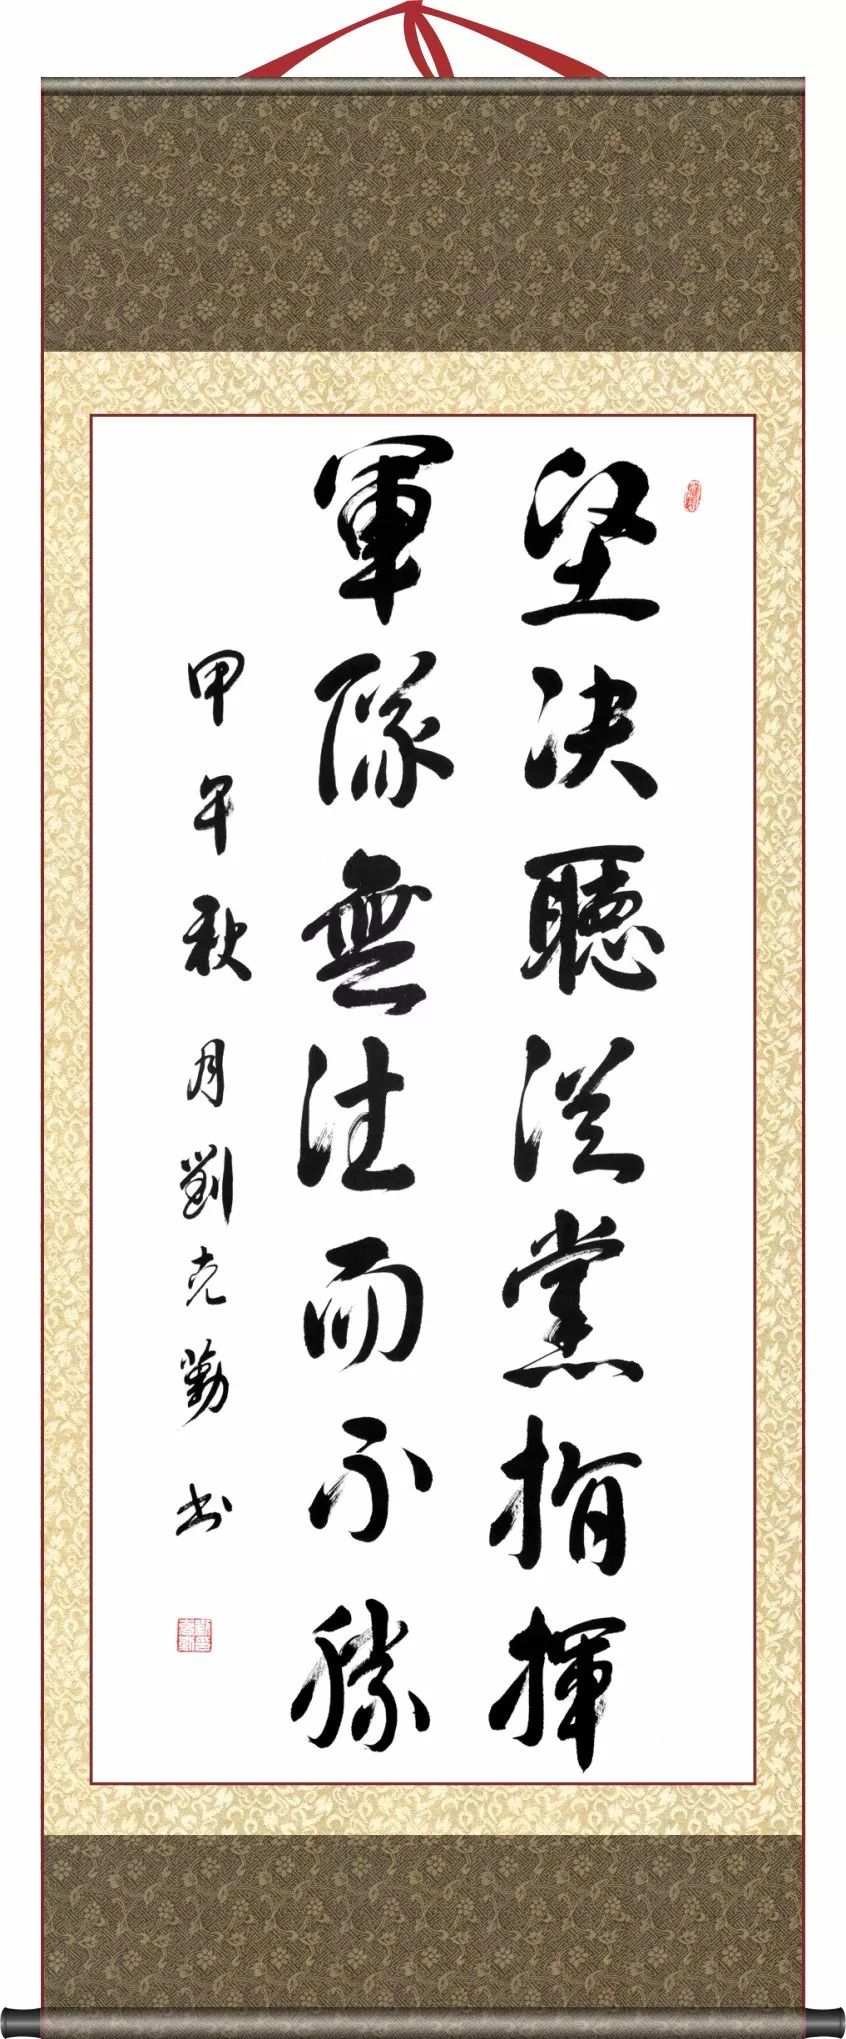 堅決聽從黨指揮
軍隊無往而不勝
甲午秋月劉克勤书